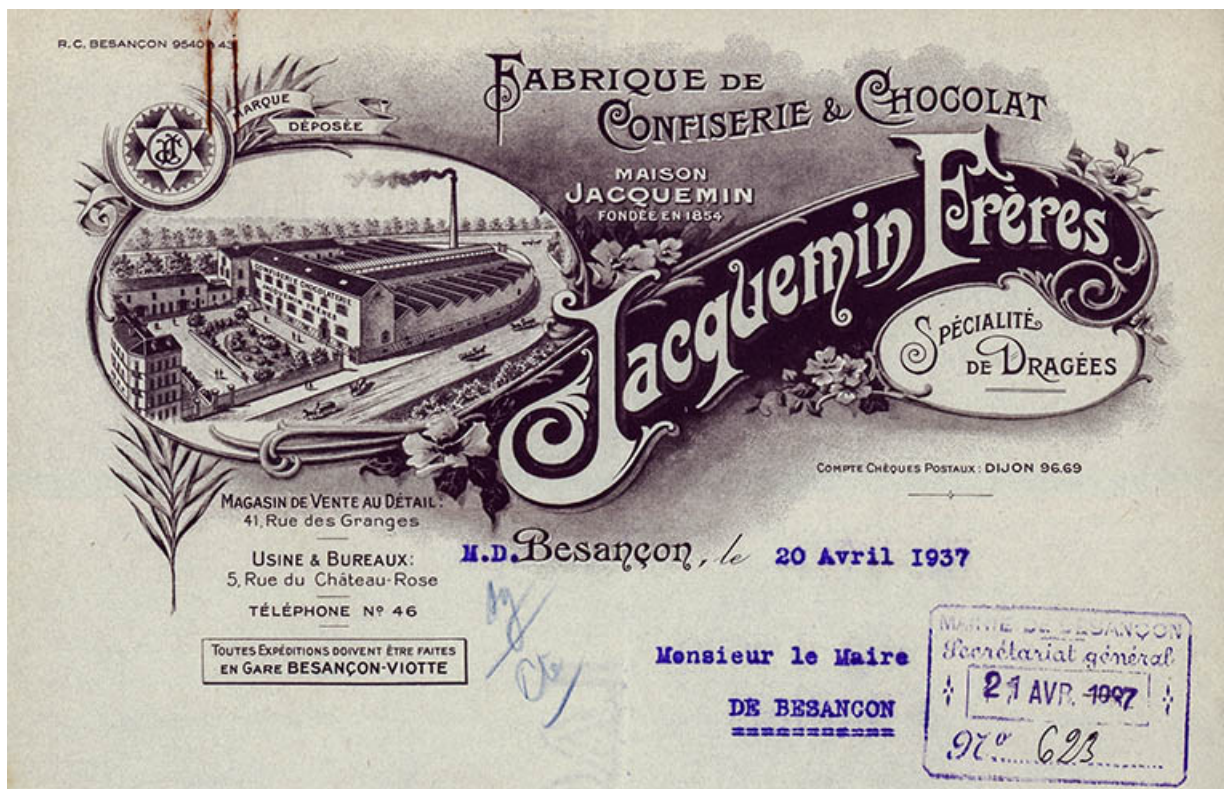 R.C. BESANÇON 9540
MARQUE
DÉPOSÉE
FABRIQUE DE
CONFISERIE & CHOCOLAT
MAISON
JACQUEMIN
FONDÉE EN 1854
Jacquemin Frères
CONFISERIE CHOCOLATERIE
JACQUEMIN FRÈRES
SPÉCIALITÉ
DE DRAGÉES
COMPTE CHÈQUES POSTAUX : DIJON 96.69
MAGASIN DE VENTE AU DÉTAIL :
41, Rue des Granges
USINE & BUREAUX :
5, Rue du Château-Rose
TÉLÉPHONE Nº 46
TOUTES EXPÉDITIONS DOIVENT ÊTRE FAITES
EN GARE BESANÇON-VIOTTE
M.D. Besançon, le 20 Avril 1937
Monsieur le Maire
DE BESANCON
===========
MAIRIE DE BESANÇON
Secrétariat général
21 AVR. 1937
Nº 623